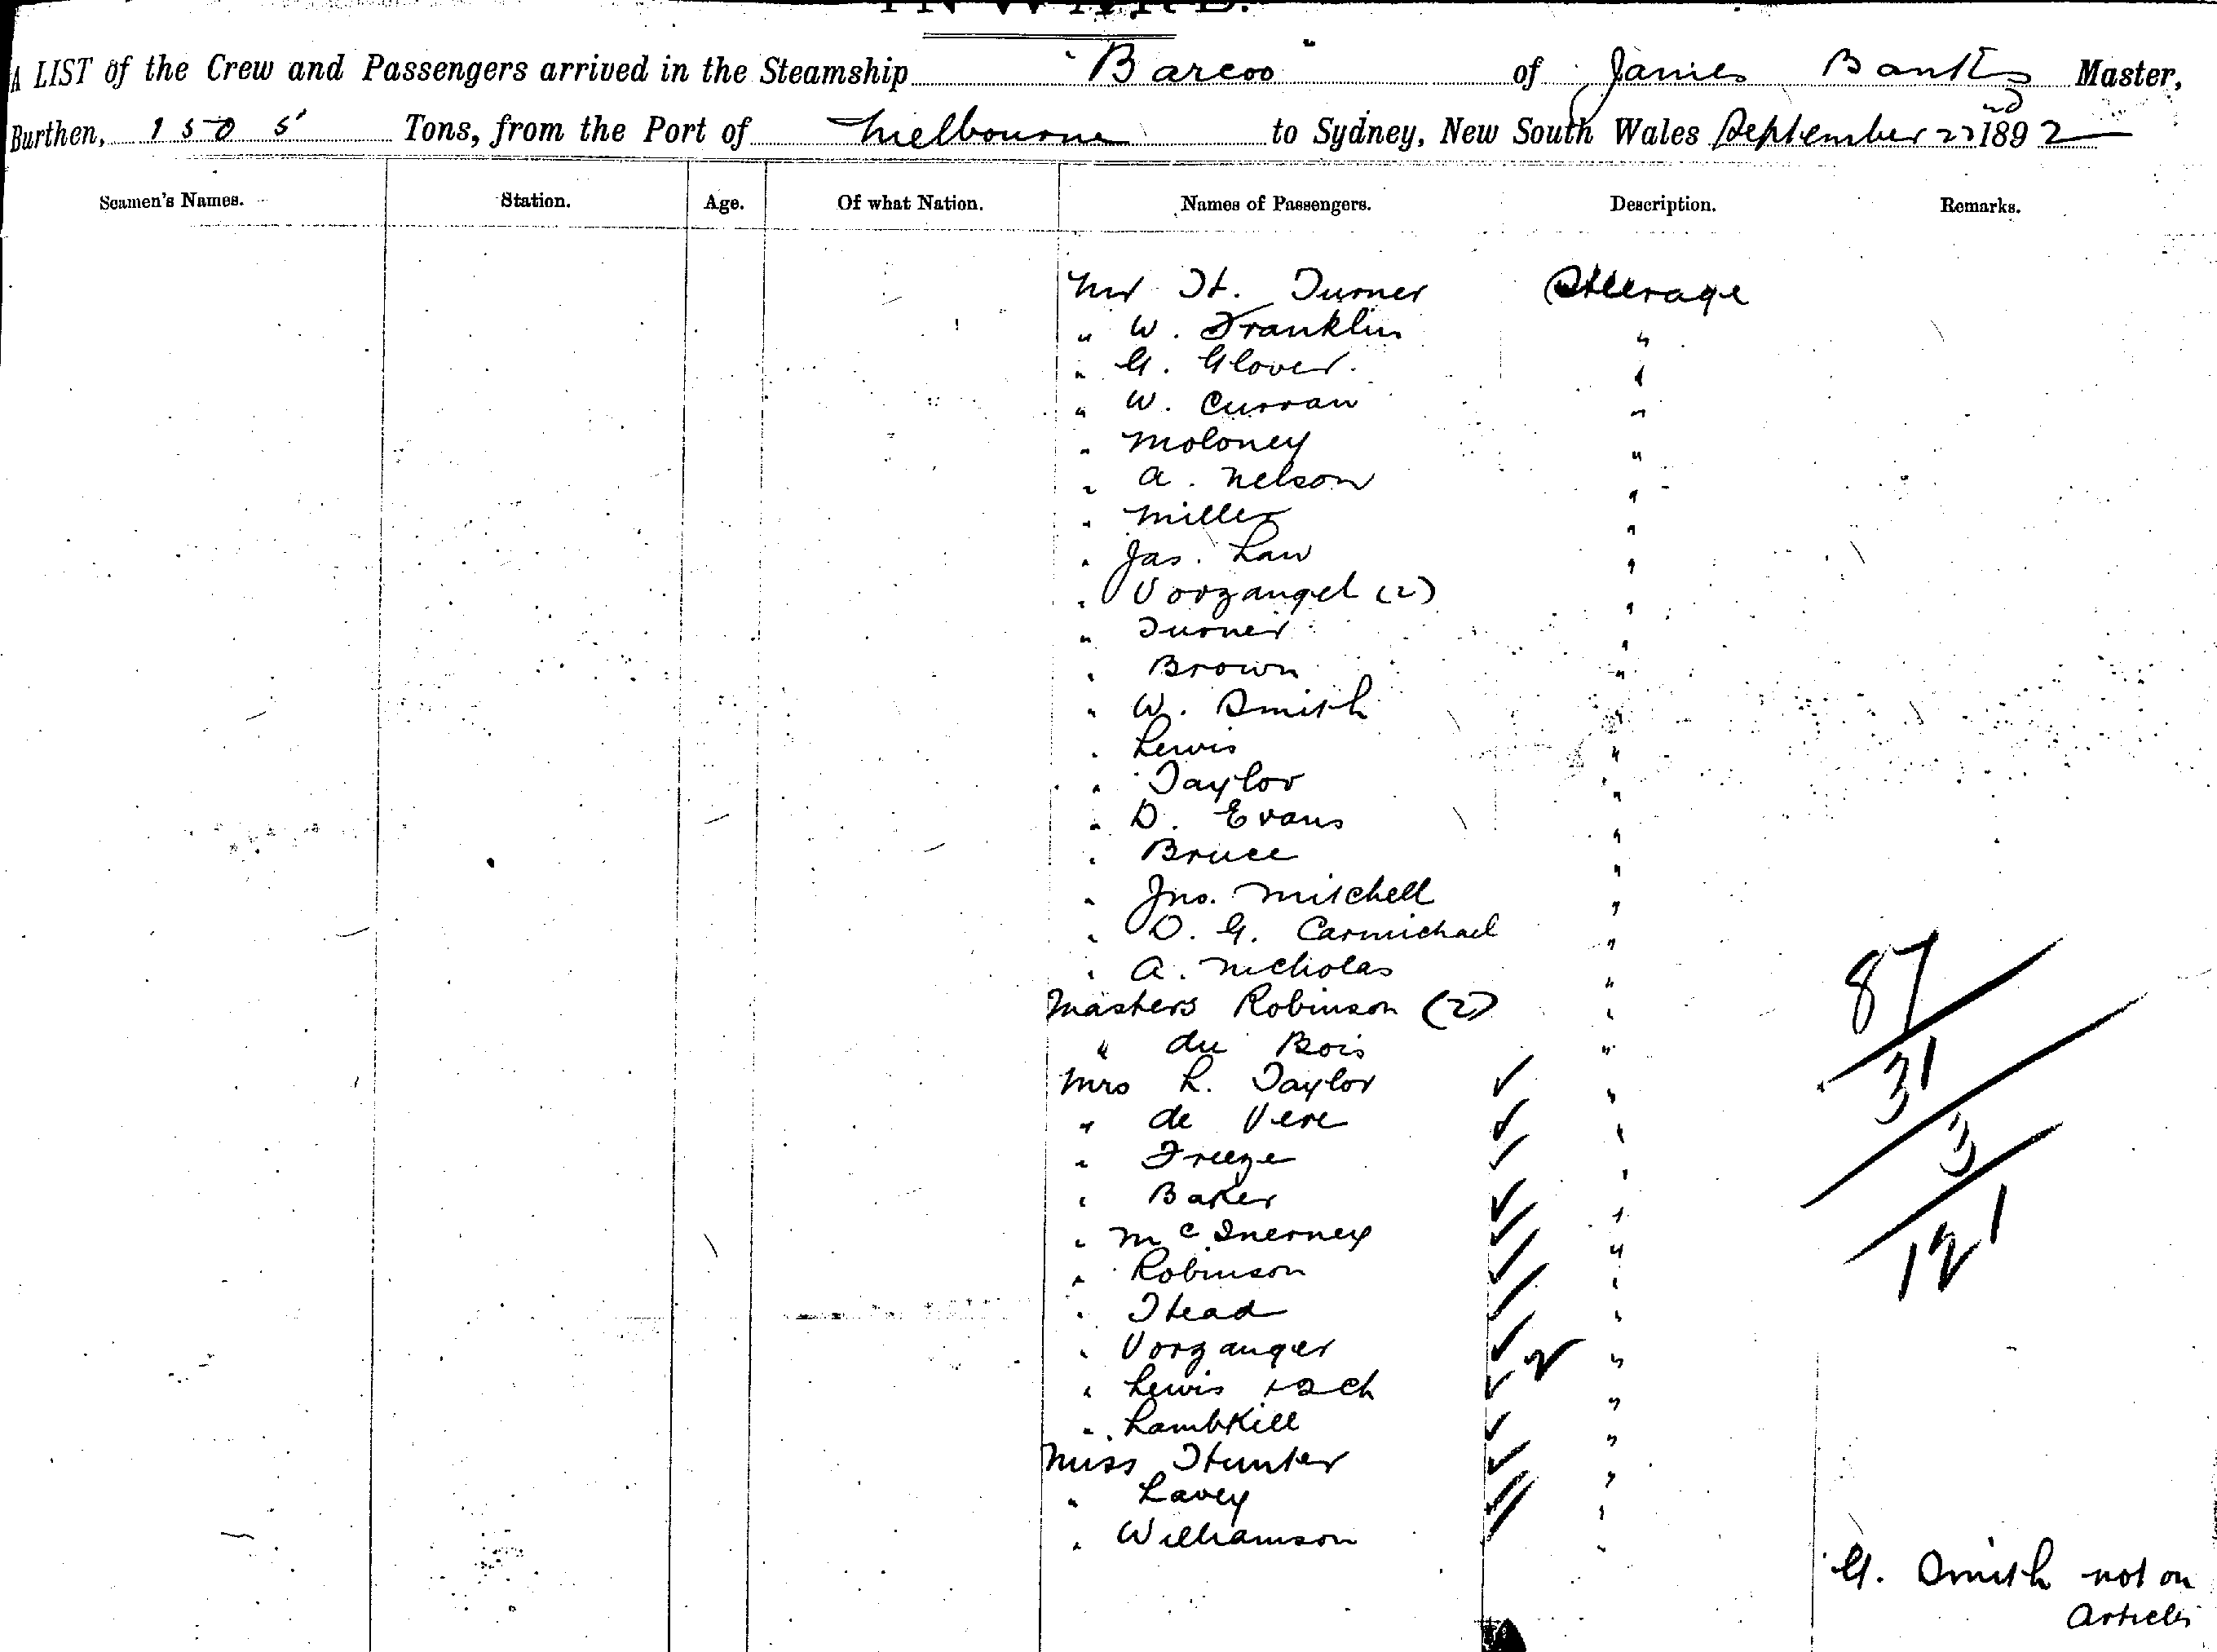 INWARD.
A LIST of the Crew and Passengers arrived in the Steamship "Barcoo" of James Banks Master,
Burthen, 1505 Tons, from the Port of Melbourne to Sydney, New South Wales September 22nd 1892
Seamen's Names. Station. Age. Of what Nation. Names of Passengers. Description. Remarks.
Mr H. Turner Steerage
" W. Franklin "
" G. Glover "
" W. Curran "
" Moloney "
" A. Nelson "
" Miller "
" Jas. Law "
" Vorzangel (2) "
" Turner "
" Brown "
" W. Smith "
" Lewis "
" Taylor "
" D. Evans "
" Bruce "
" Jno. Mitchell "
" D. G. Carmichael "
" A. Nicholas "
Masters Robinson (2) "
" du Bois "
Mrs L. Taylor ✓ "
" de Vere ✓ "
" Freeze ✓ "
" Baker ✓ "
" McInerney ✓ "
" Robinson ✓ "
" Head ✓ "
" Vorzanger ✓ "
" Lewis + 2 ch ✓ 2 "
" Lambkill ✓ "
Miss Hunter ✓ "
" Lavey ✓ "
" Williamson ✓ "
87
31
3
121
G. Smith not on
Articles